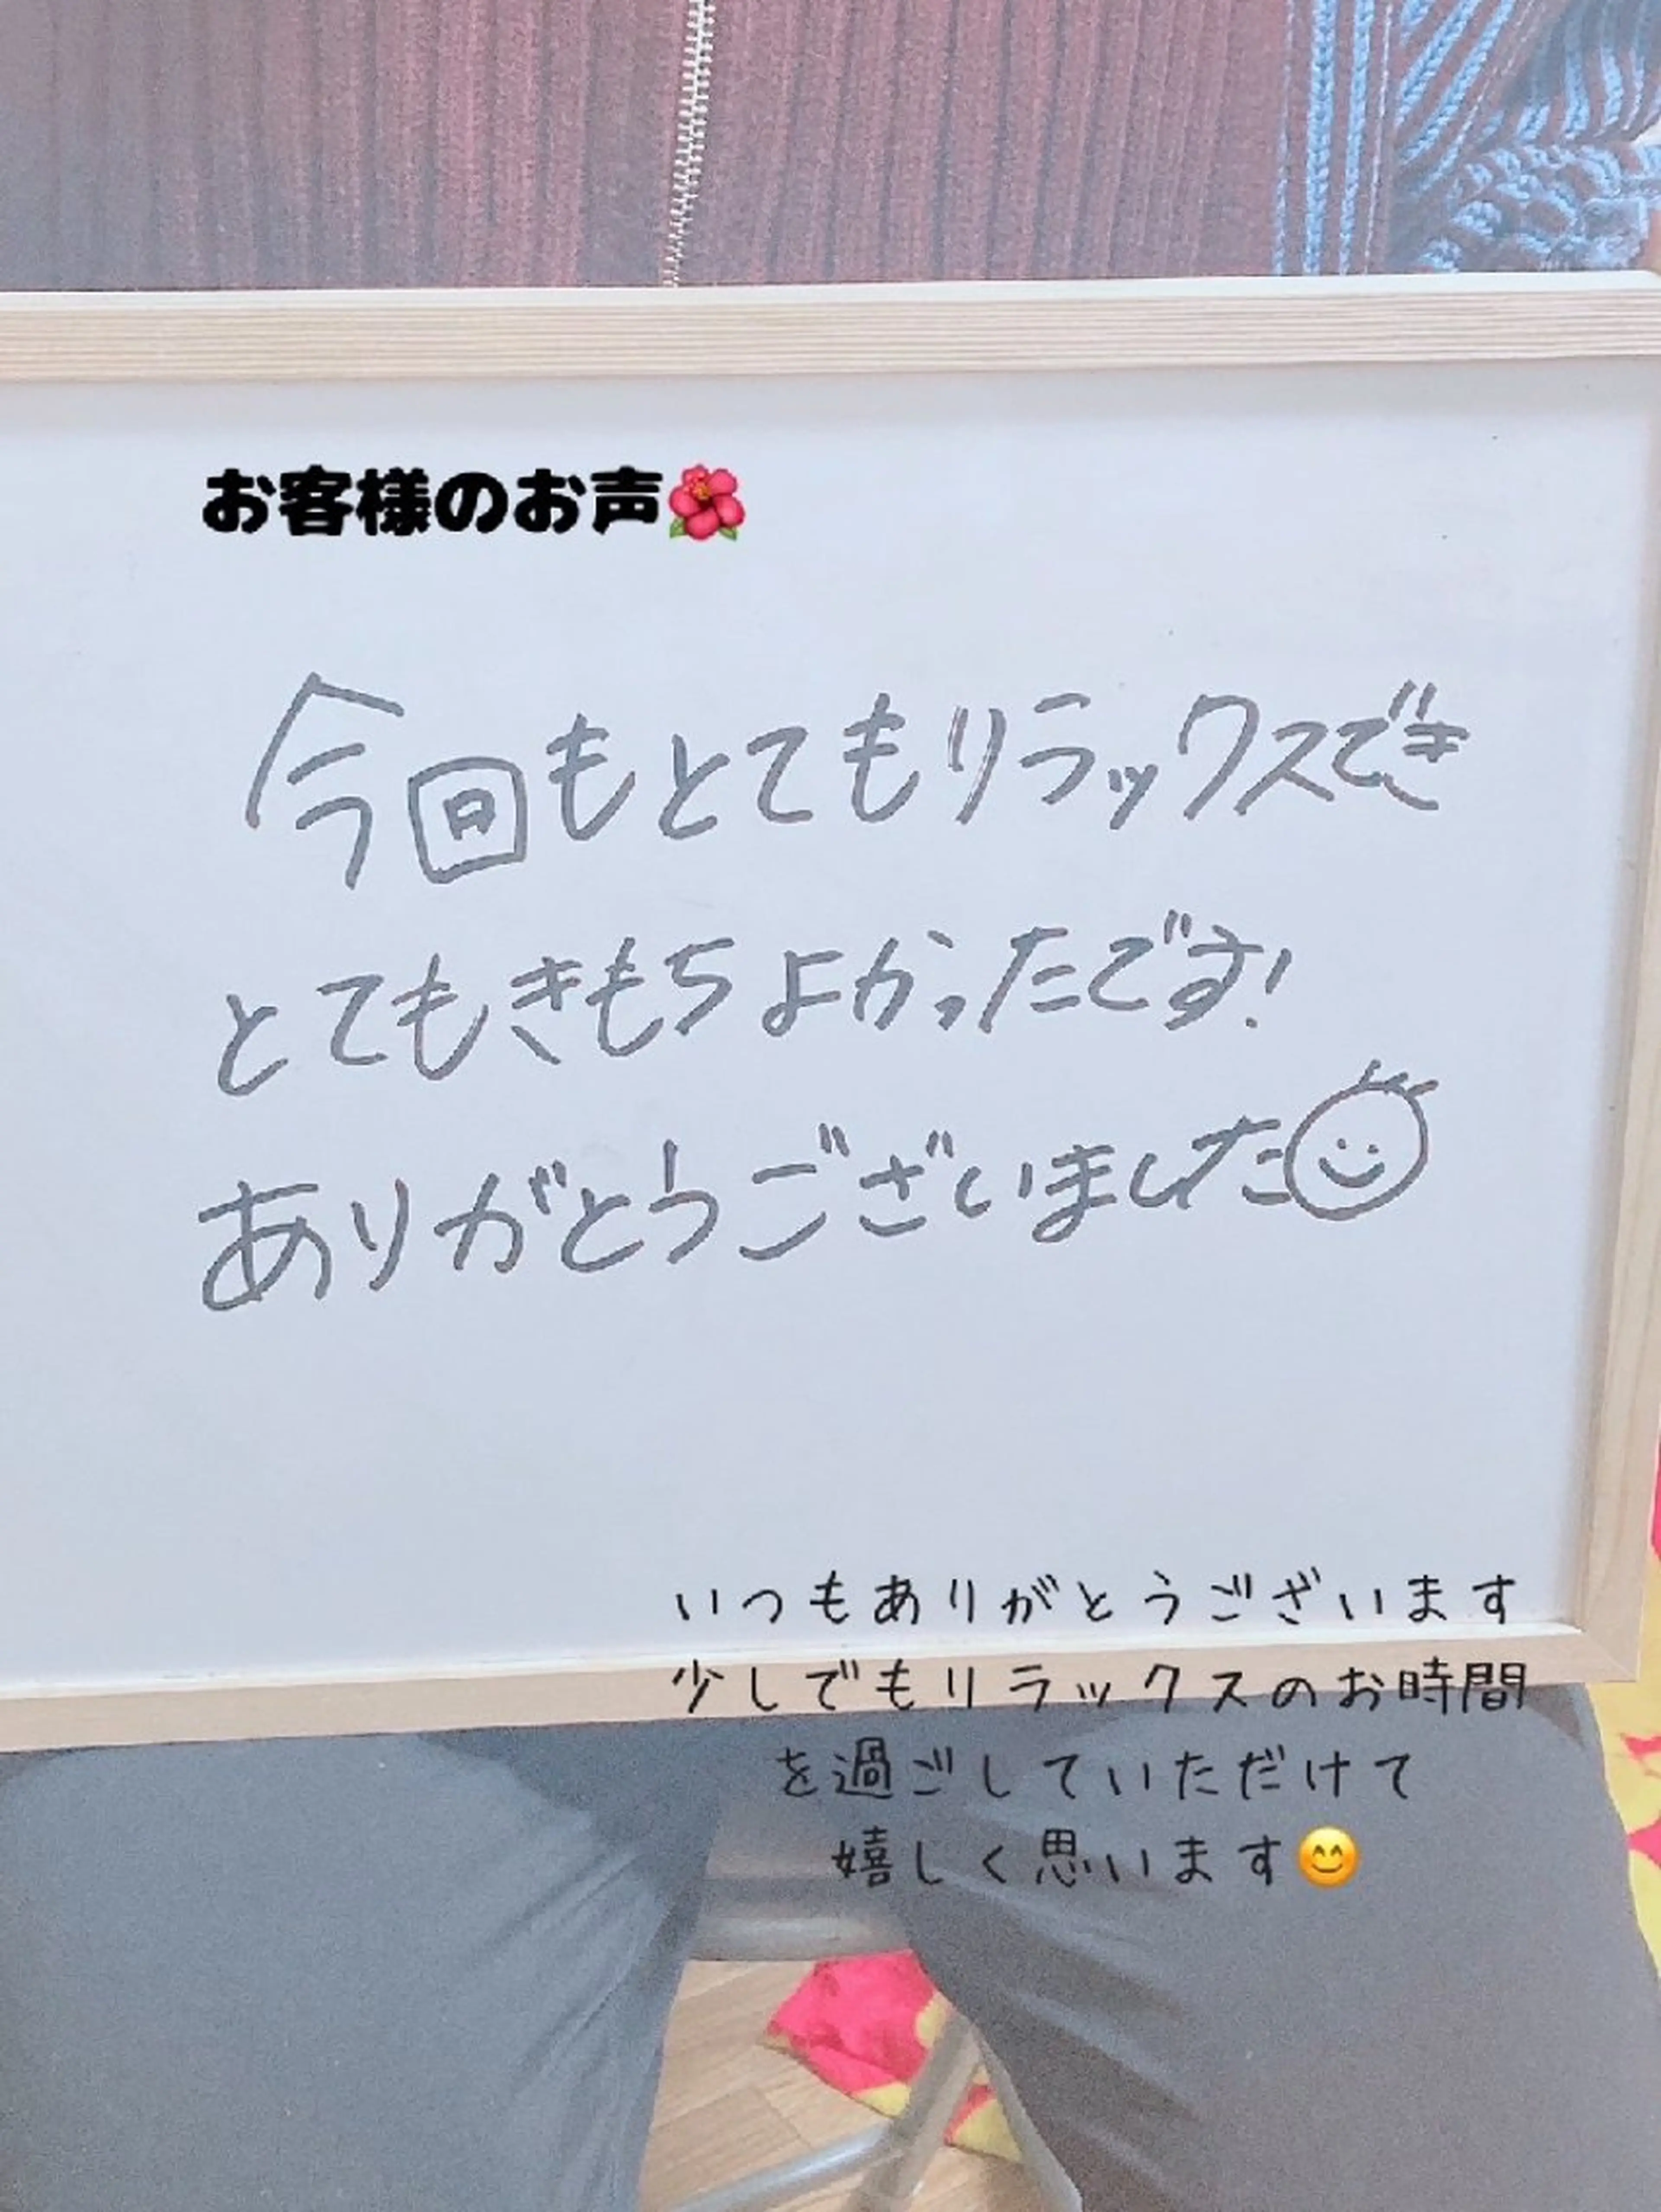 お客様のお声🌺
今回もとてもリラックスでき
とてもきもちよかったです!
ありがとうございました
いつもありがとうございます
少しでもリラックスのお時間
を過ごしていただけて
嬉しく思います😊